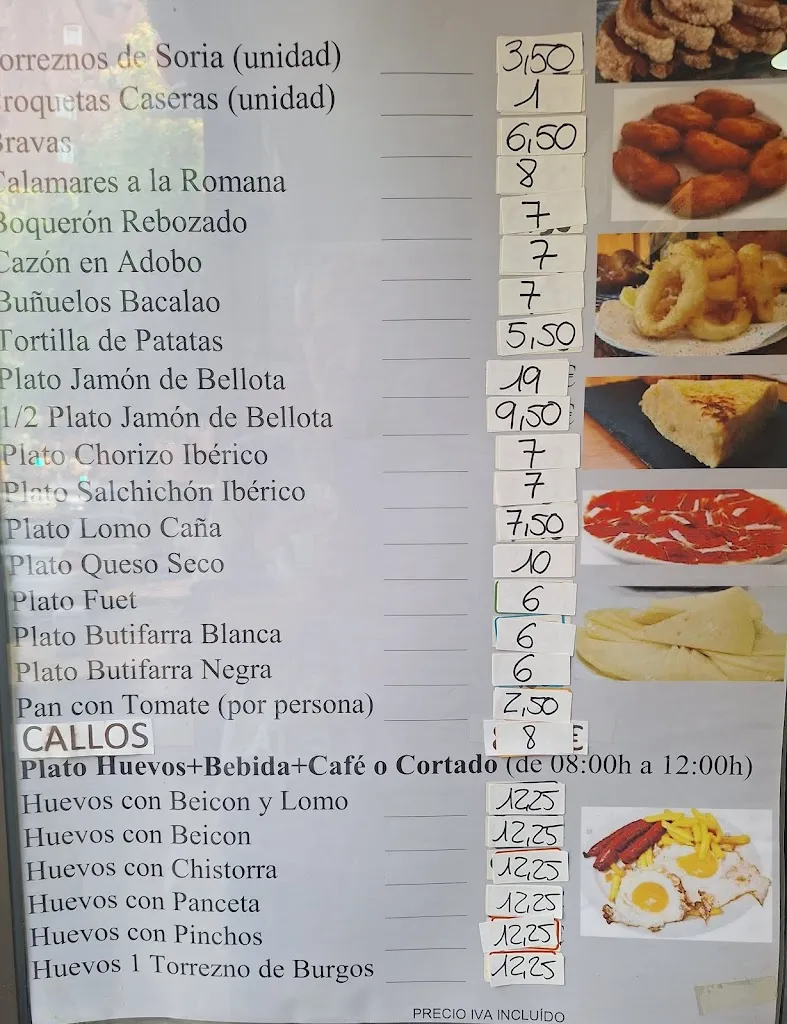 orreznos de Soria (unidad) 3,50
roquetas Caseras (unidad) 1
Bravas 6,50
Calamares a la Romana 8
Boquerón Rebozado 7
Cazón en Adobo 7
Buñuelos Bacalao 7
Tortilla de Patatas 5,50
Plato Jamón de Bellota 19 €
1/2 Plato Jamón de Bellota 9,50
Plato Chorizo Ibérico 7
Plato Salchichón Ibérico 7
Plato Lomo Caña 7,50
Plato Queso Seco 10
Plato Fuet 6
Plato Butifarra Blanca 6
Plato Butifarra Negra 6
Pan con Tomate (por persona) 2,50
CALLOS 8 €
Plato Huevos+Bebida+Café o Cortado (de 08:00h a 12:00h)
Huevos con Beicon y Lomo 12,25
Huevos con Beicon 12,25
Huevos con Chistorra 12,25
Huevos con Panceta 12,25
Huevos con Pinchos 12,25
Huevos 1 Torrezno de Burgos 12,25
PRECIO IVA INCLUÍDO